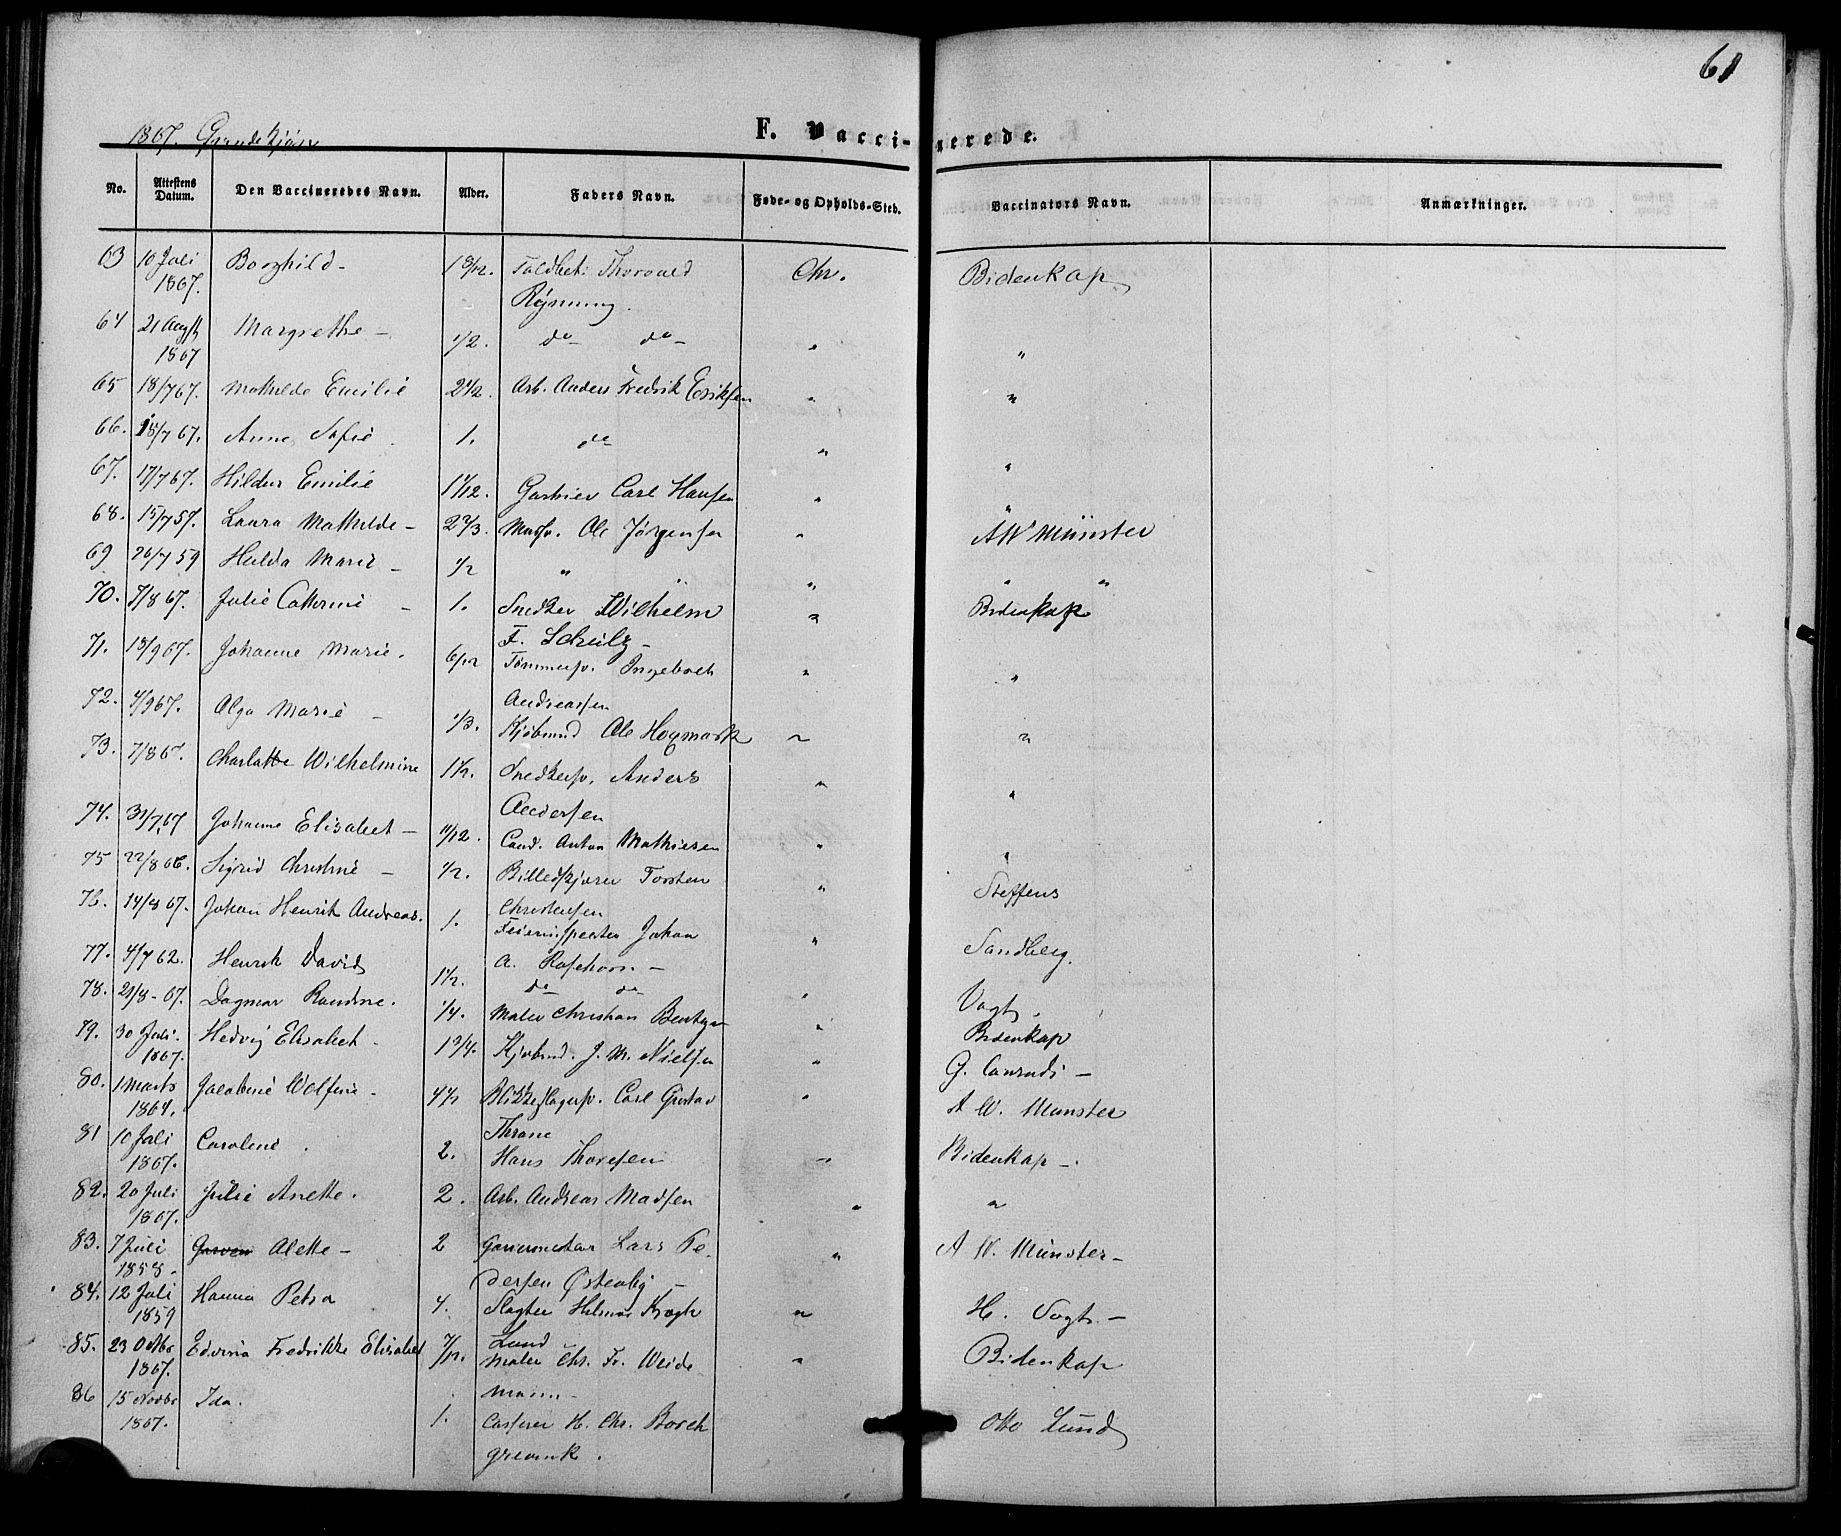 61
1867. Qvindekjøn
F. Vaccinerede.
No. Attestens Datum. Den Vaccineredes Navn. Alder. Faders Navn. Føde- og Opholds-Sted. Vaccinators Navn. Anmærkninger.
63 10 Juli Borghild - 1 8/12. Toldbet. Thorvald Chr. Bidenkap
1867. Rynning.
64 21 Augst Margrethe - 1/2. do do - " "
1867
65 18/7 67. Mathilde Emilie 2 1/2. Arb. Anders Fredrik Eriksen " "
66. 18/7 67. Anne Sofie 1. do " "
67. 17/7 67. Hildur Emilie 1 1/12. Gartner Carl Hansen " "
68. 15/7 57. Laura Mathilde - 2 2/3. Ole Jørgensen " AW Münster
69 26/7 59 Hulda Marie - 1/2 " " " "
70. 7/8 67. Julie Cathrine - 1. Snedker Wilhelm " Bidenkap
F. Schulz -
71. 18/9 67. Johanne Marie. 6/12 Tømmersv. Ingebret " "
Andreassen
72. 4/9 67. Alga Marie - 1/3. Kjøbmd Ole Hogmark " "
73. 7/8 67. Charlotte Wilhelmine 1 1/2. Snedkersv. Anders " "
Andersen
74. 31/7 67 Johanne Elisabet - 11/12. Cand. Anton Mathiesen " "
75 22/8 66. Sigrid Christine - 1/2. Billedskjærer Torsten " Steffens
Christensen
76. 14/8 67. Johan Henrik Andreas. 1. Feierinspecteur Johan " Sandberg.
A. Rosehorn -
77. 4/7 62. Henrik David 1 1/2. do do " Vogt.
78. 21/8 - 67. Dagmar Randine. 1/4. Maler Christian " Bidenkap
79. 30 Juli. Hedvig Elisabet - 1 3/4. Kjøbmd. J. M. Nielsen " G. Conradi -
1867.
80. 1 Marts Jacobine Wolfine - 4 1/2 Blikkeslagersv. Carl Gustav " A W. Münster
1864. Thrane
81 10 Juli Caroline. 2. Hans Thoresen " Bidenkap -.
1867.
82. 20 Juli Julie Anette. 2. Arb. Andreas Madsen " "
1867.
83. 7 Juli Alette - 2 Lars Pe- " A W. Münster -
1858 - dersen Østenby -
84. 12 Juli Hanna Petra 4. Slagter Hilmar Krogh " H. Vogt -
1859 Lund
85. 23 Octbr Edvina Fredrikke Elisabet 7/12. Maler Chr. Fr. Weide " Bidenkap
1867. mann -
86 15 Novbr Ida. 1. Casserer H. Chr. Borch Otto Lund
1867. grevink.